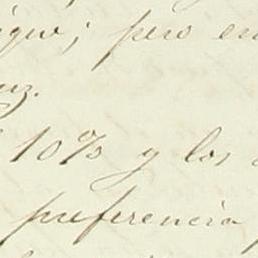 ; pero en
10% y los
preferencia